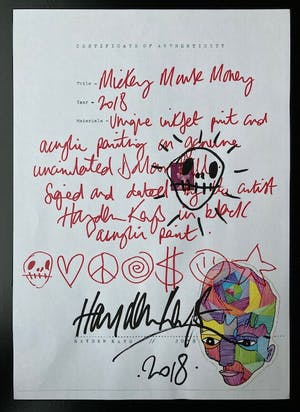 CERTIFICATE OF AUTHENTICITY
Title - Mickey Mouse Money
Year - 2018
Materials - Unique inkjet print and
acrylic painting on genuine
uncirculated Dollar
Signed and dated by the artist
Hayden Kays in black
acrylic paint.
$
Hayden Kays
HAYDEN KAYS //
.2018.